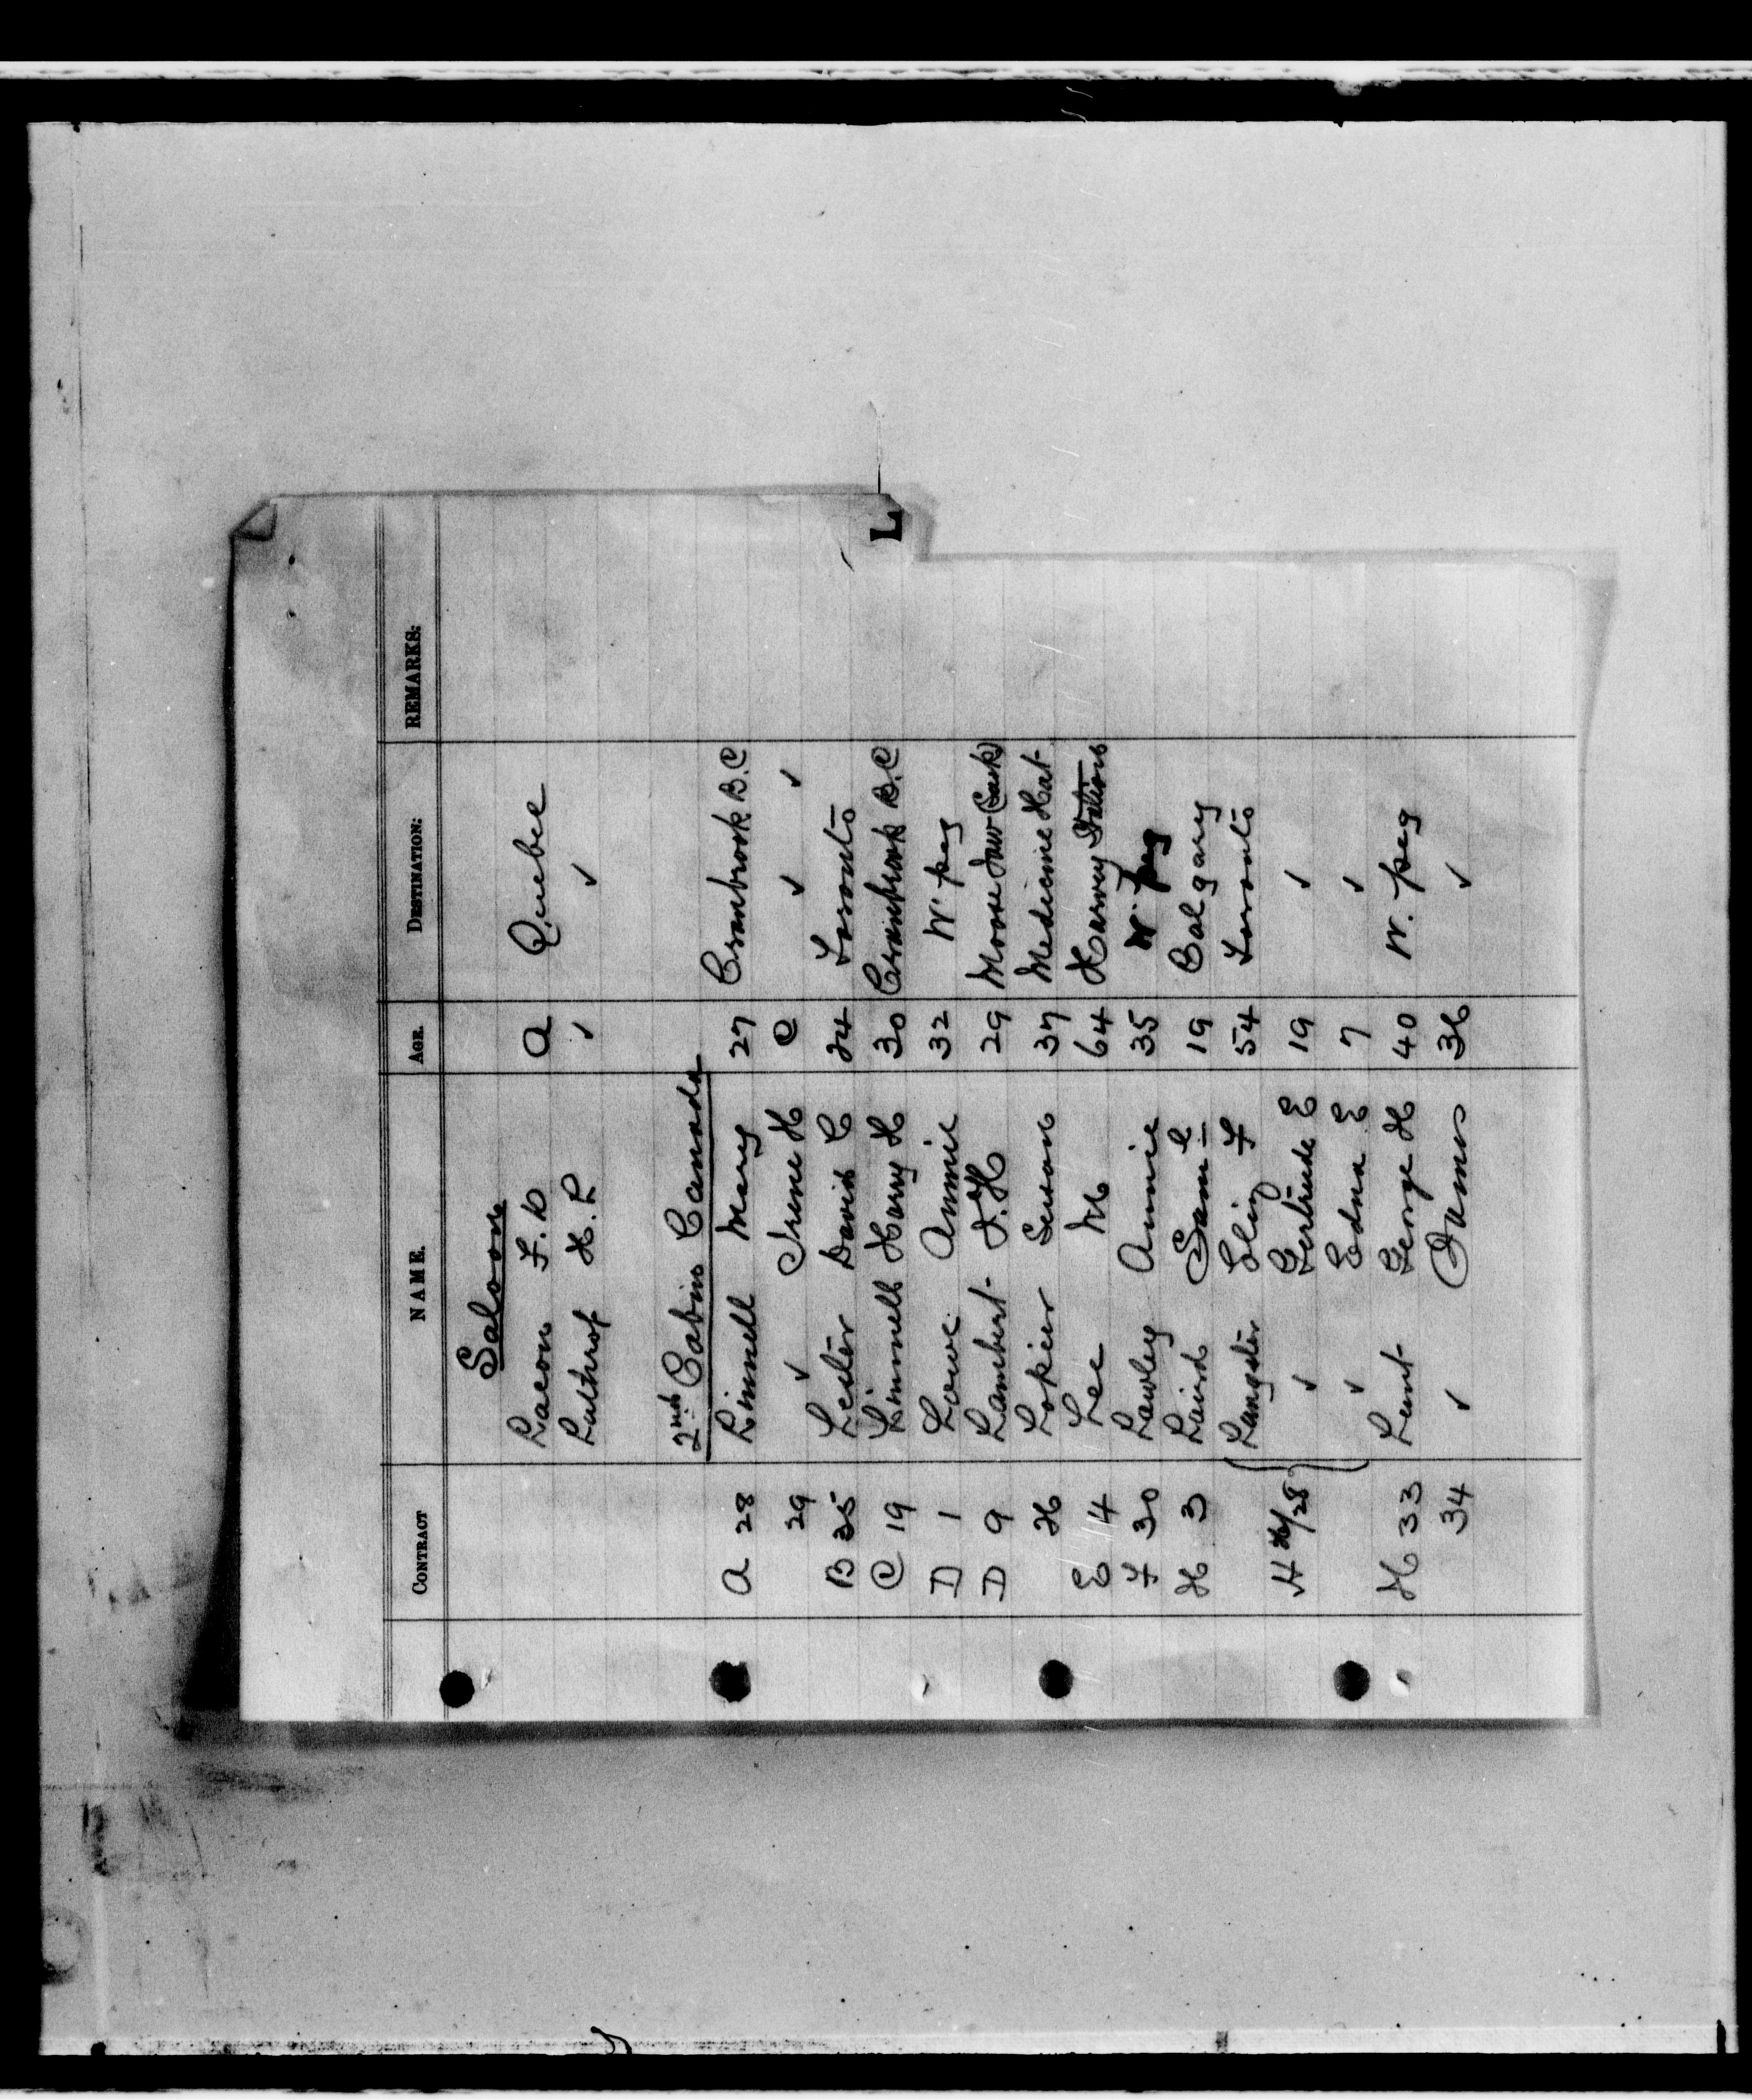 L
CONTRACT NAME. AGE. DESTINATION: REMARKS:
Saloon
Lacon F. D a Quebec
Lathrop H. P ✓ ✓
2nd Cabin Canada
A 28 Linnell Mary 27 Cranbrook B.C
29 ✓ Irene H C ✓ ✓
B 35 Lester David C 24 Toronto
C 19 Linnell Harry H 30 Cranbrook B.C
D 1 Lowe Annie 32 W. peg
D 9 Lambert H 29 Moose Jaw (Sask)
Lokier 37 Medicine Hat
E 4 Lee M 64 Harvey Station
F 30 Lawley Annie 35 W. peg
H 3 Laird Saml 19 Calgary
Langster F 54 Toronto
H 26/28 ✓ Gertrude E 19 ✓
✓ Edna E 7 ✓
H 33 Lent George H 40 W. peg
34 ✓ James 36 ✓